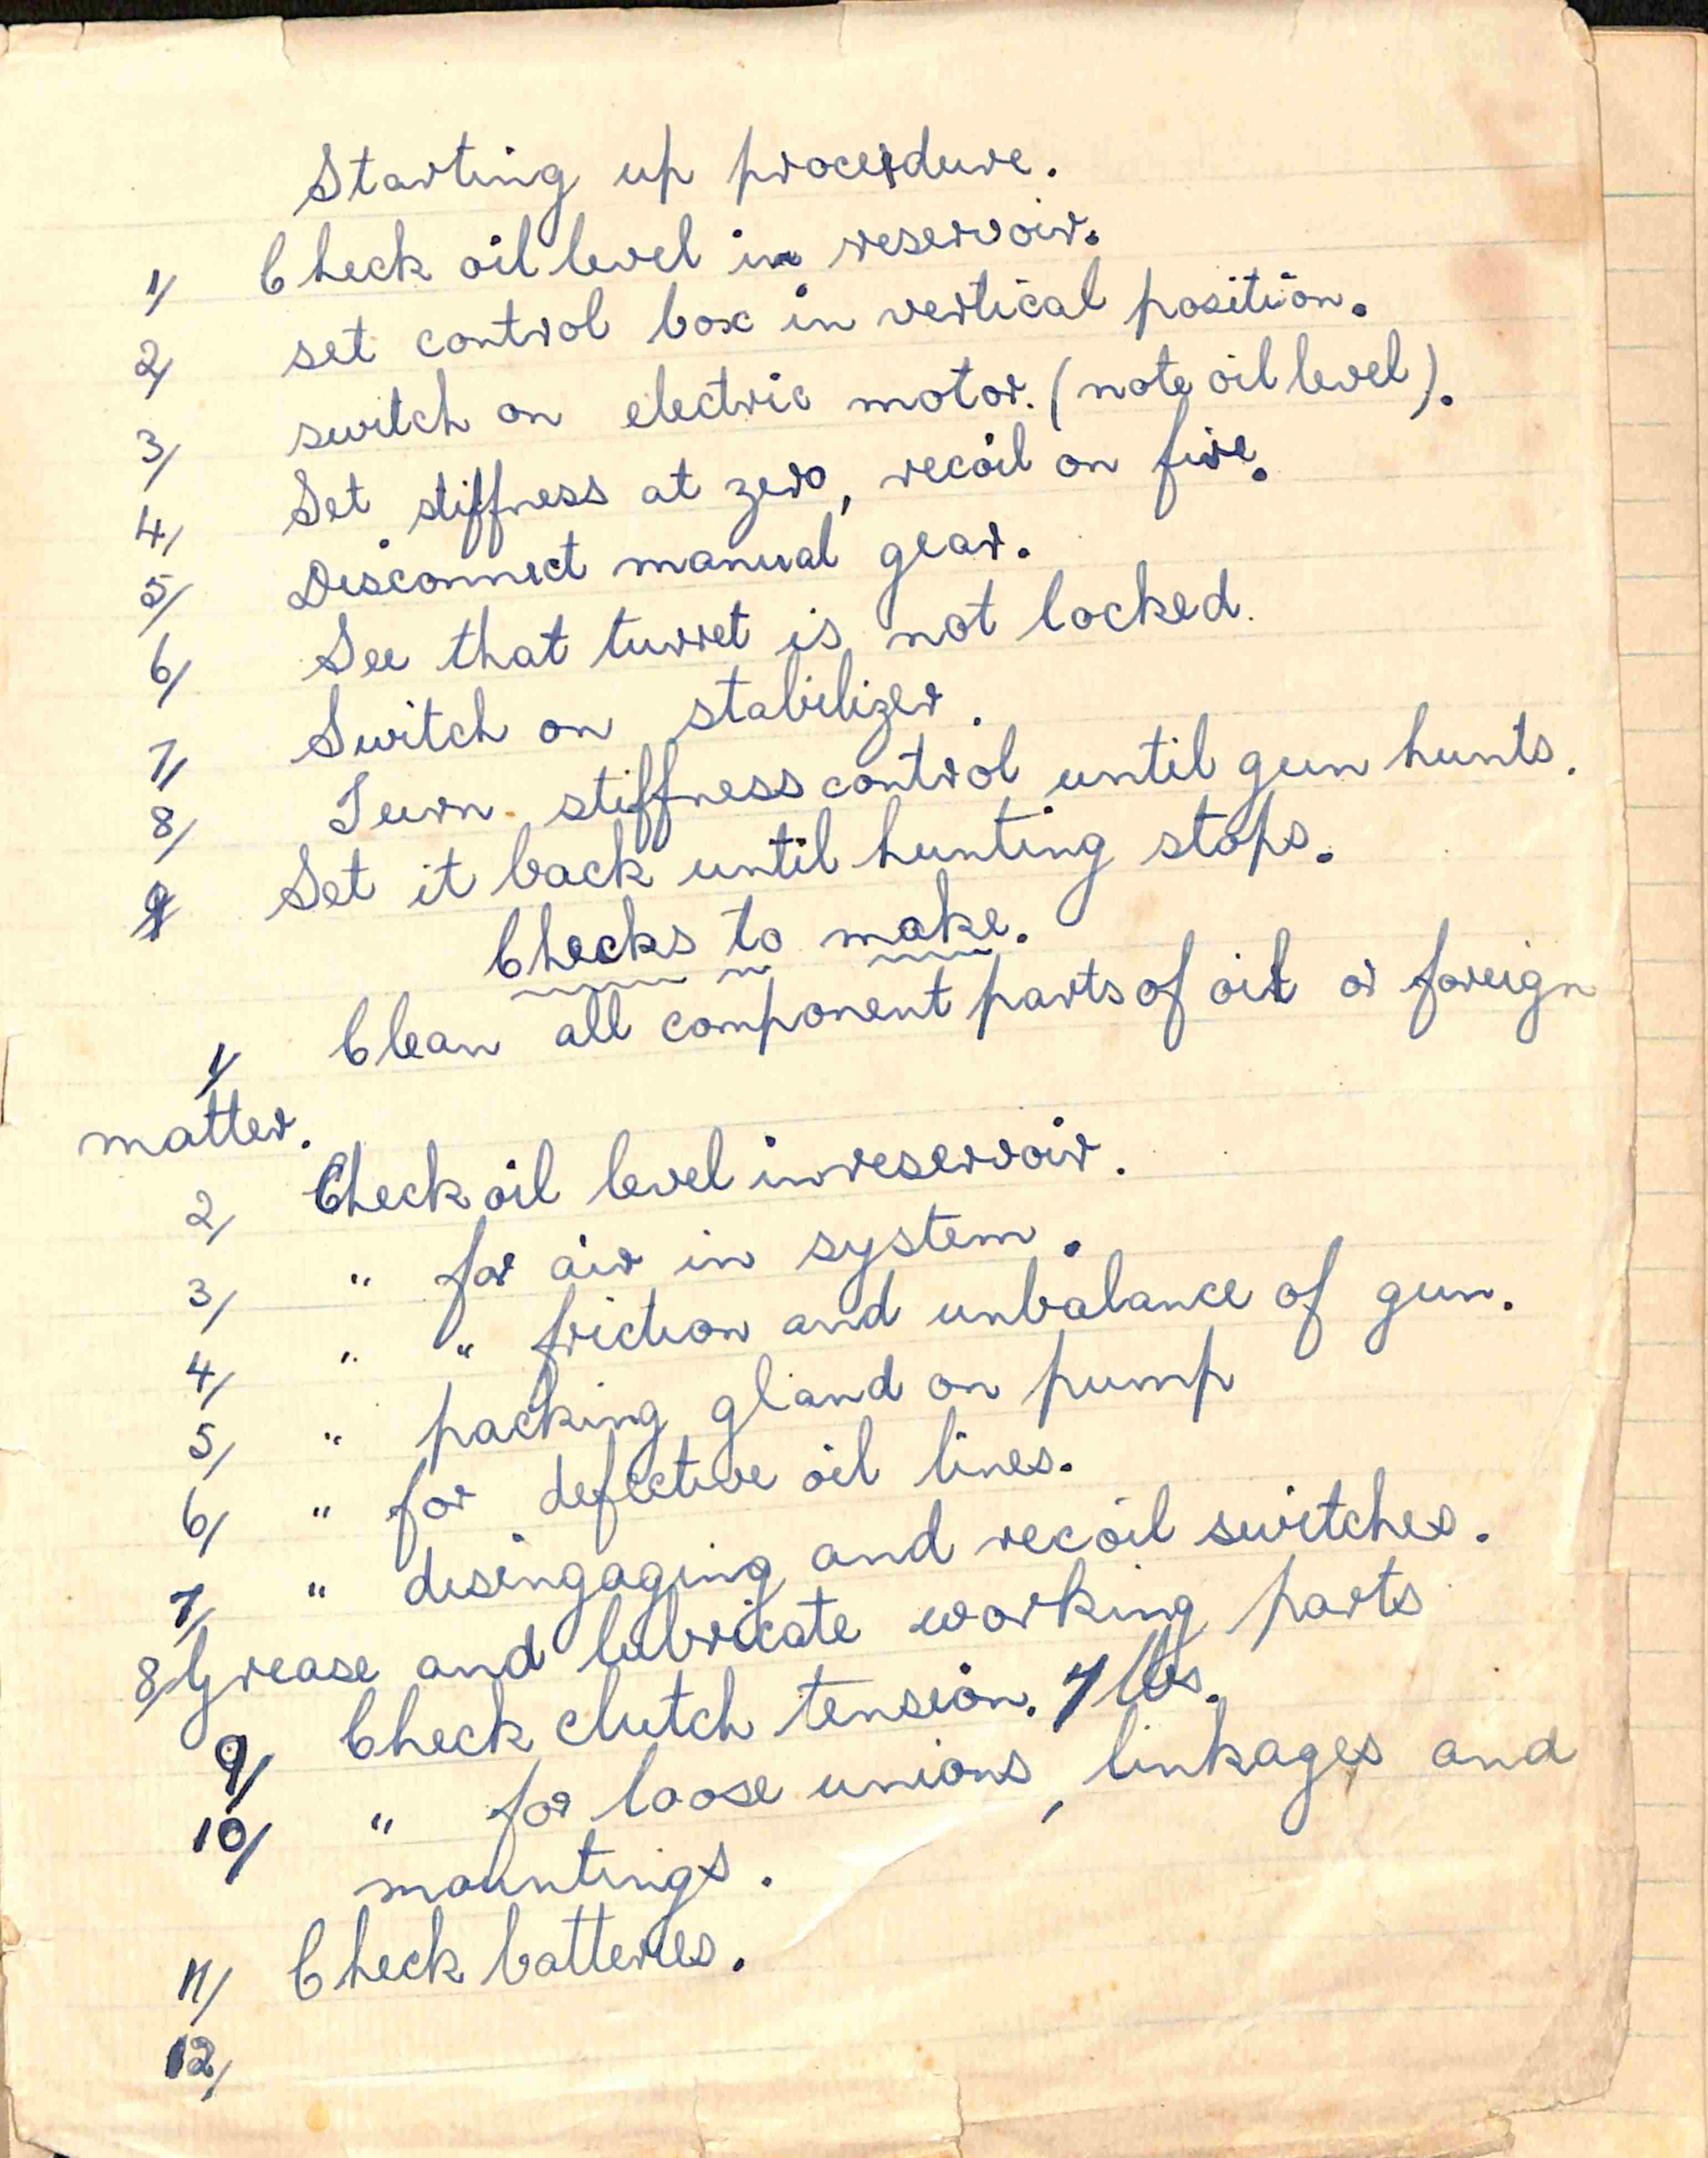 Starting up procedure.
1/ Check oil level in reservoir.
2/ set control box in vertical position.
3/ switch on electric motor. (note oil level).
4/ Set stiffness at zero, recoil on five.
5/ Disconnect manual gear.
6/ See that turret is not locked.
7/ Switch on stabilizer.
8/ Turn stiffness control until gun hunts.
9/ Set it back until hunting stops.
Checks to make.
1/ Clean all component parts of oil or foreign
matter.
2/ Check oil level in reservoir.
3/ " for air in system.
4/ " " friction and unbalance of gun.
5/ " packing gland on pump
6/ " for defective oil lines.
7/ " disengaging and recoil switches.
8/ Grease and lubricate working parts
9/ Check clutch tension. 7 lbs.
10/ " for loose unions, linkages and
mountings.
11/ Check batteries.
12/